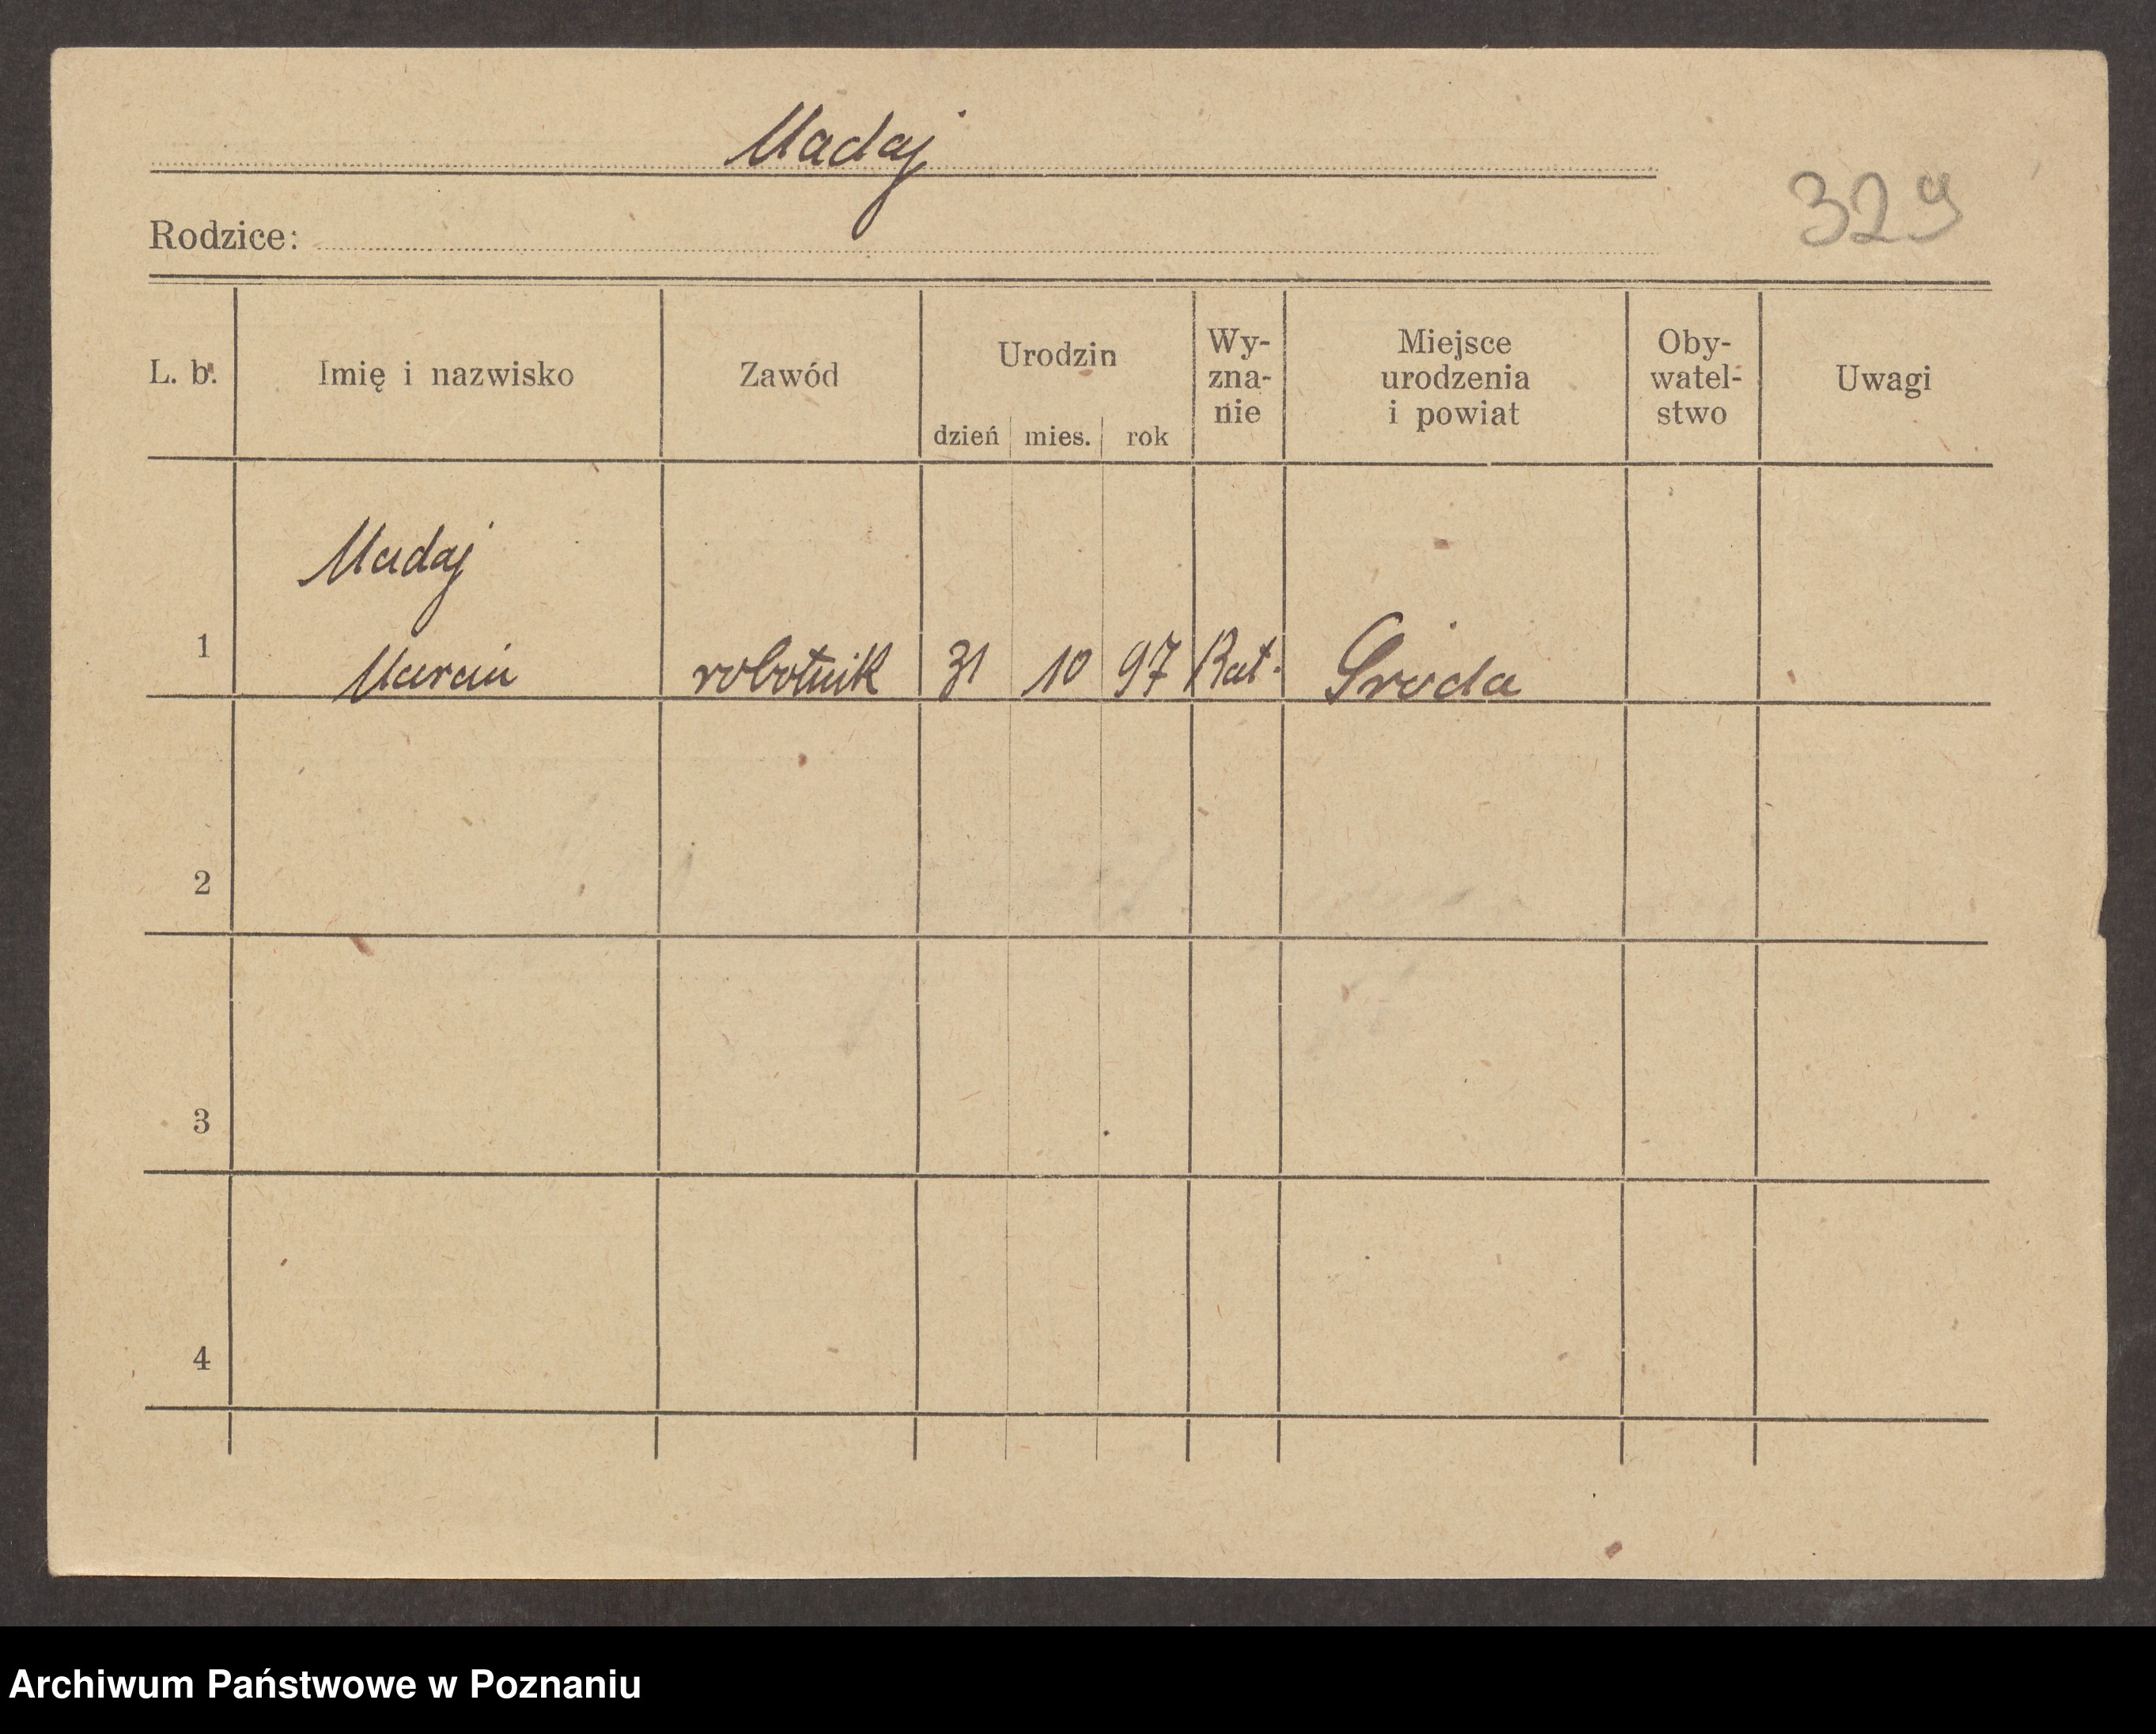 Madaj
329
Rodzice:
L. b. Imię i nazwisko Zawód Urodzin dzień mies. rok Wy-zna-nie Miejsce urodzenia i powiat Oby-watel-stwo Uwagi
Madaj
1 Marcin robotnik 31 10 97 Kat. Środa
2
3
4
Archiwum Państwowe w Poznaniu